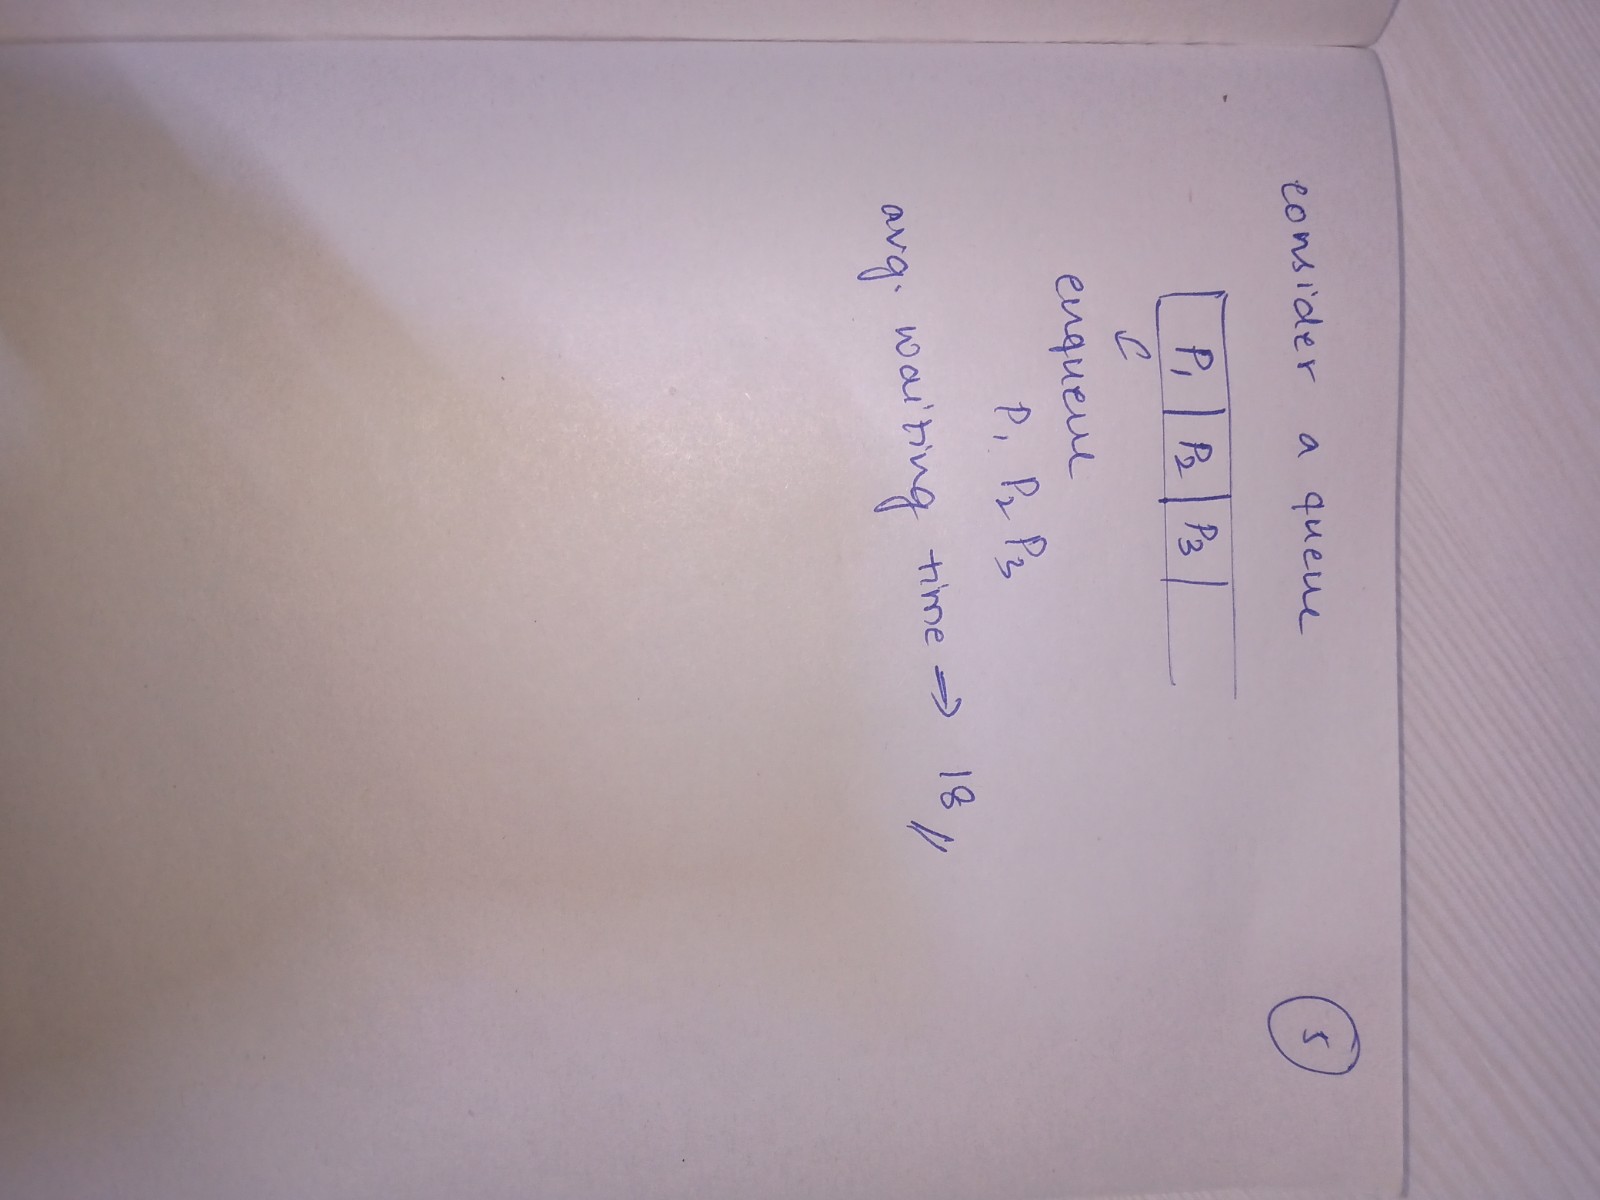 5
consider a queue
P1 P2 P3
enqueue
P1 P2 P3
avg. waiting time → 18 //